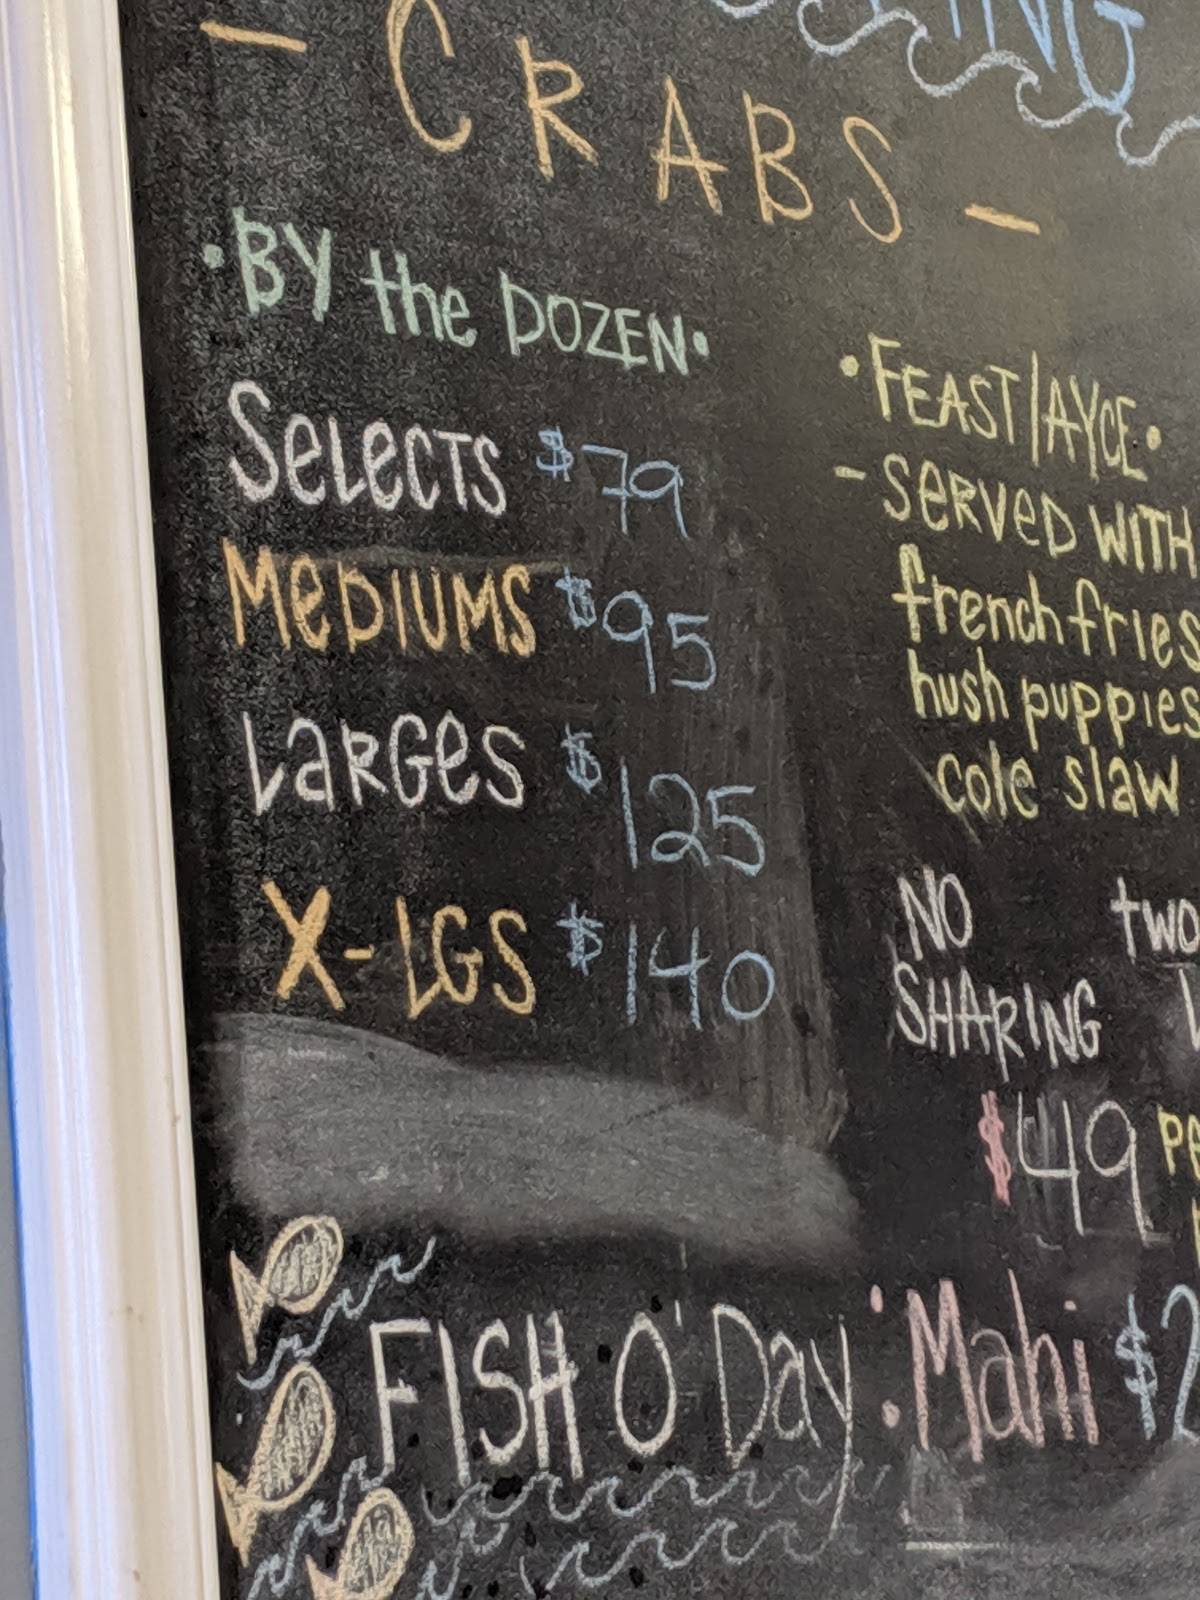 - CRABS -
• BY the DOZEN •
SeLecTS $79
MeDIUMS $95
LaRGes $125
X-LGS $140
• FEAST/AYCE •
- SeRVeD WITH
french fries
hush puppies
cole slaw
NO two
SHARING
$49
FISH O' Day: Mahi